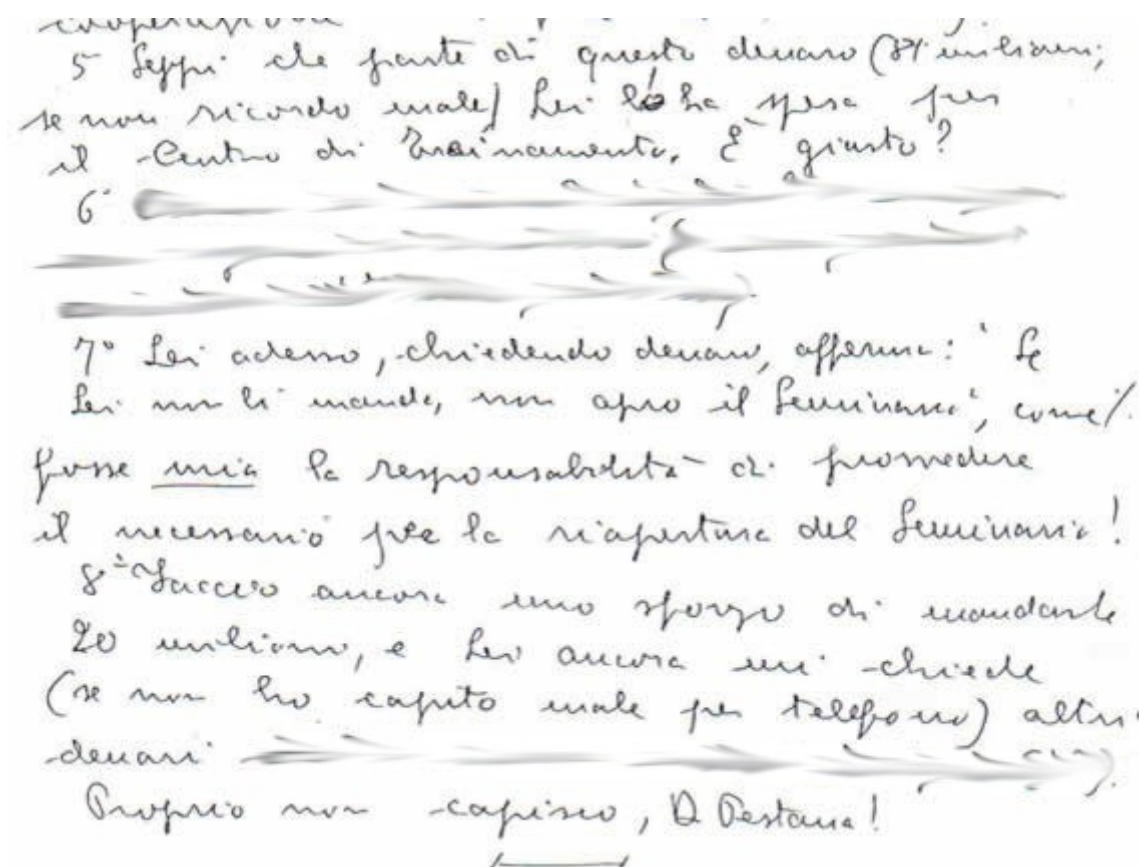 cooperazione
5 Seppi che parte di questo denaro (81 milioni,
se non ricordo male) Lei lo ha speso per
il Centro di Trainamento. È giusto?
6°
7° Lei adesso, chiedendo denaro, afferma: "Se
Lei non li manda, non apro il Seminario", come
fosse mia la responsabilità di provvedere
il necessario per la riapertura del Seminario!
8° Faccio ancora uno sforzo di mandarle
20 milioni, e Lei ancora mi chiede
(se non ho capito male per telefono) altri
denari
Proprio non capisco, D Pestana!